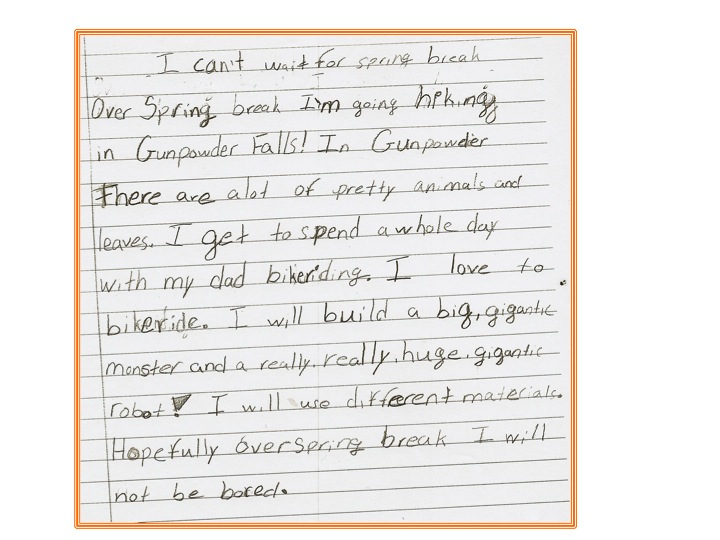 I can't wait for spring break
Over Spring break I'm going hiking
in Gunpowder Falls! In Gunpowder
There are alot of pretty animals and
leaves. I get to spend a whole day
with my dad bikeriding. I love to
bikeride. I will build a big, gigantic
monster and a really, really, huge, gigantic
robot! I will use different materials.
Hopefully over spring break I will
not be bored.